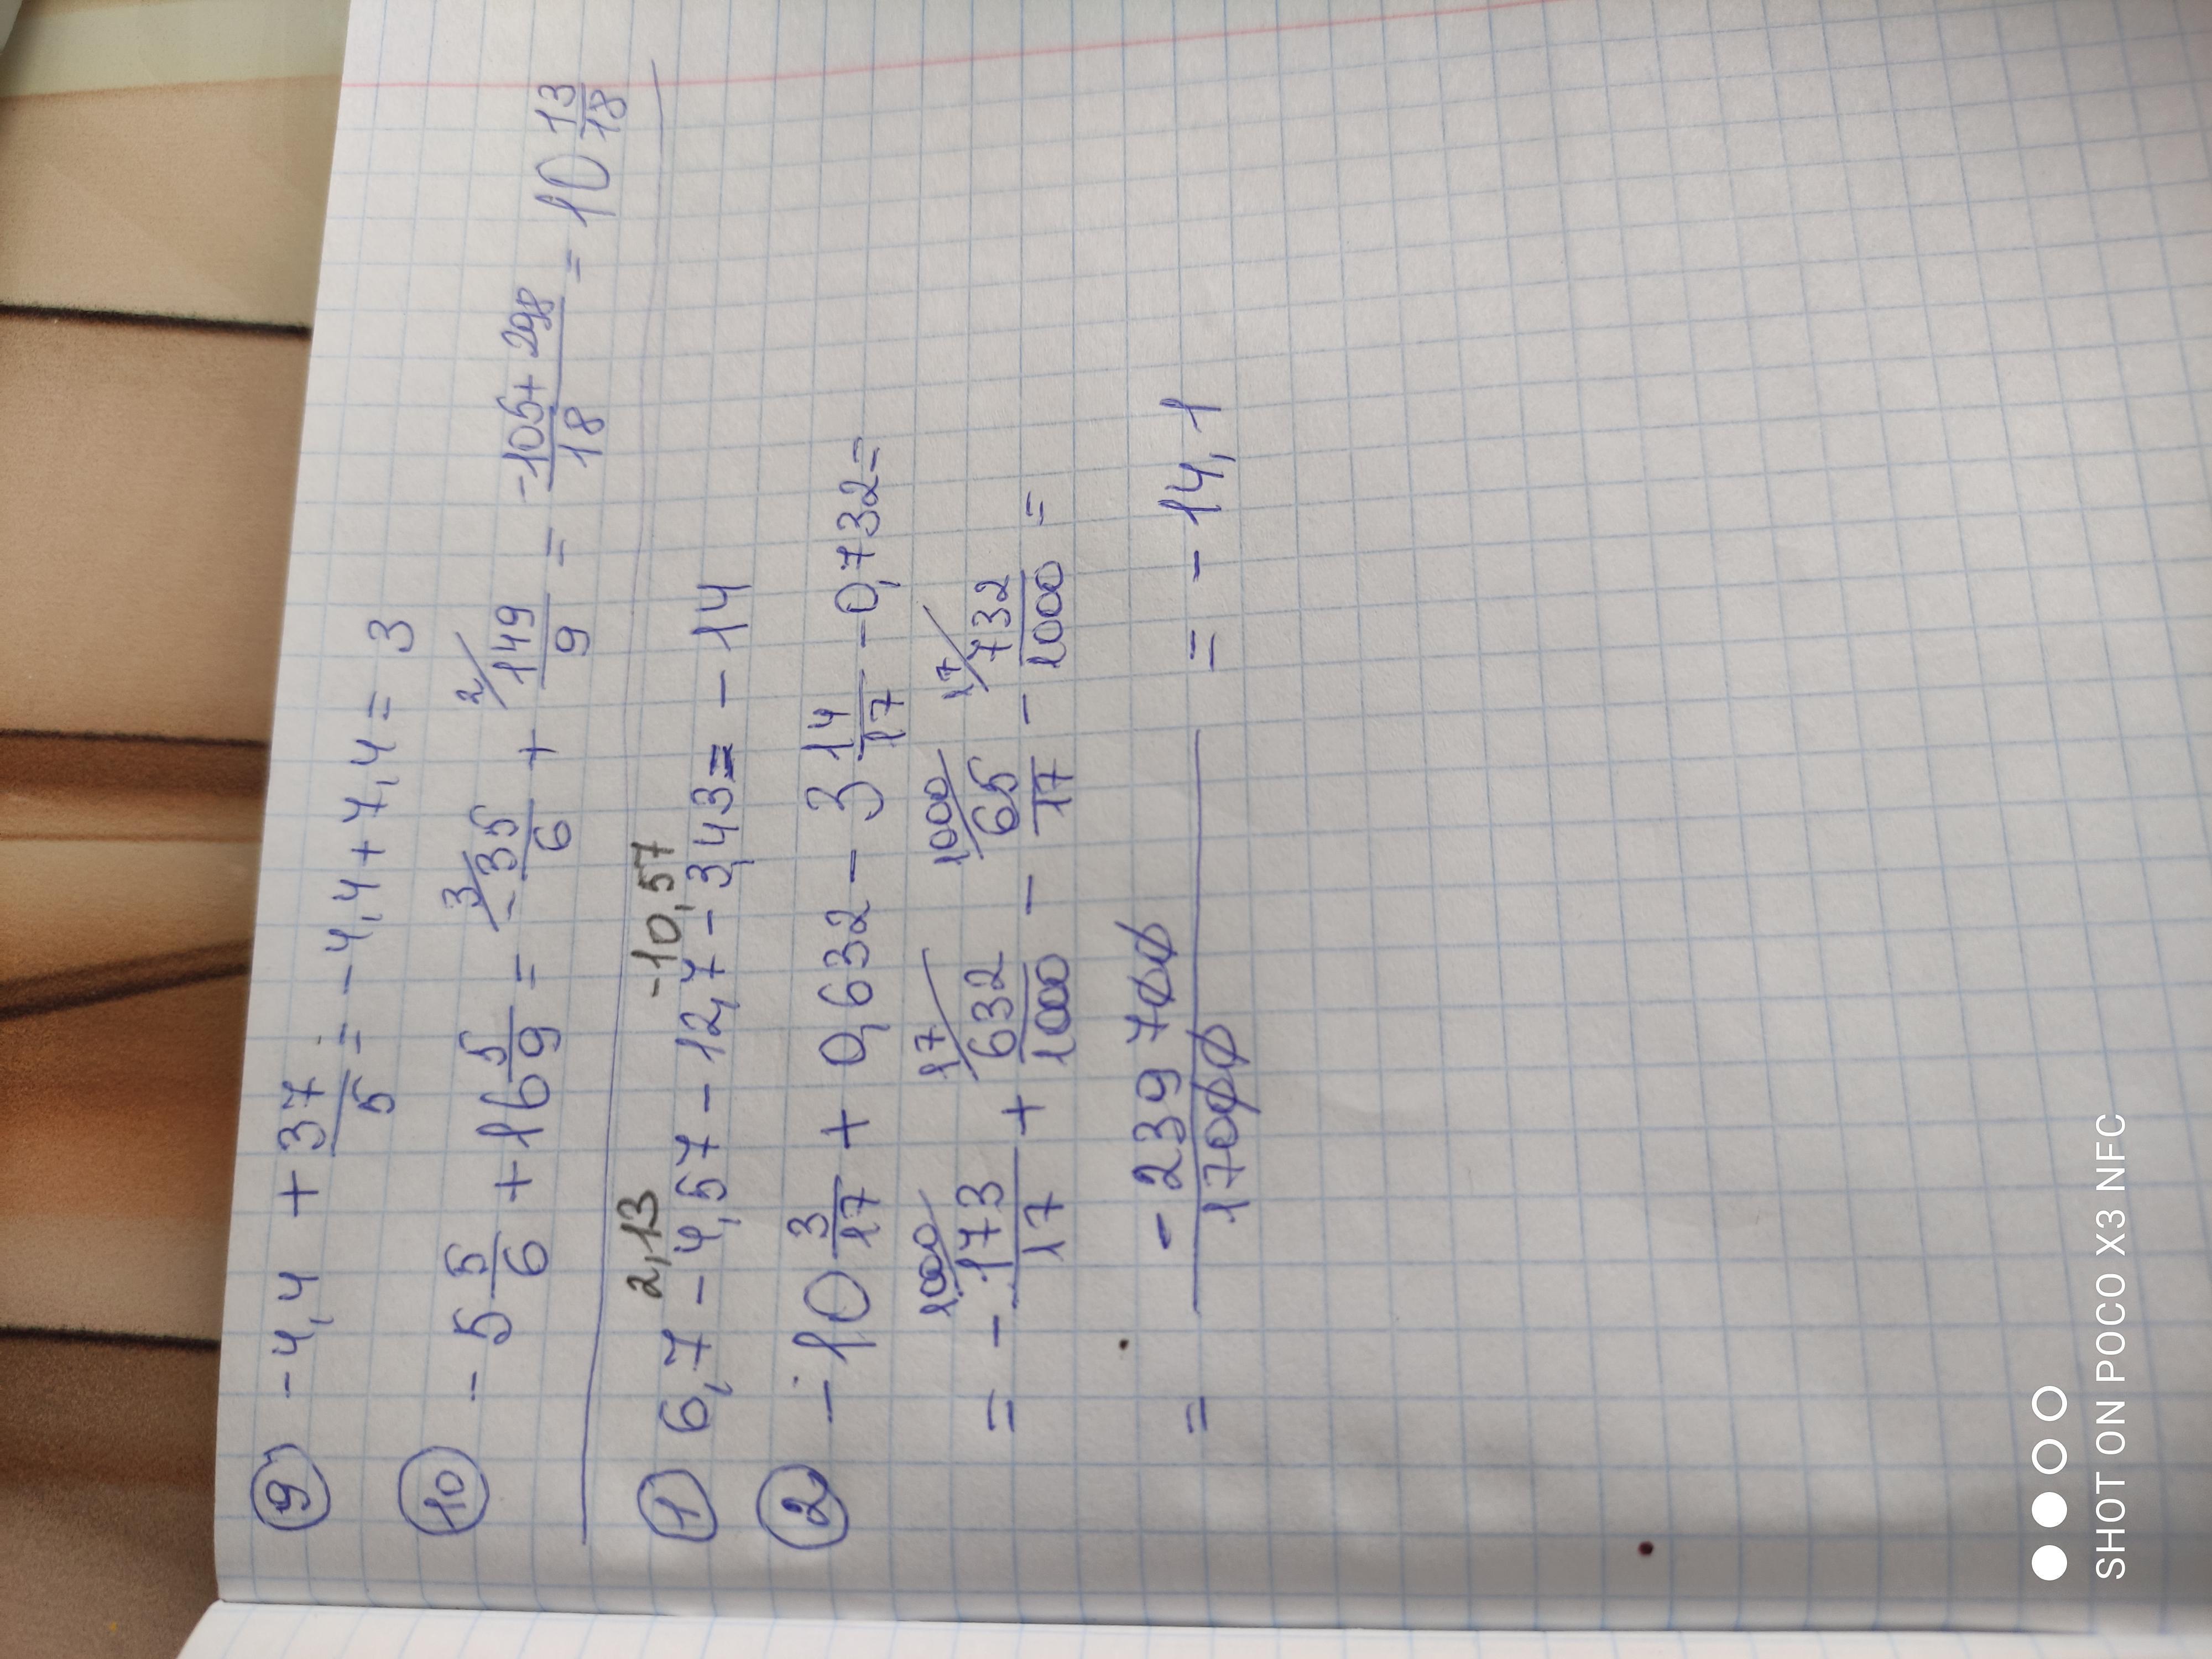 9 -4,4 + 37/5 = -4,4 + 7,4 = 3
10 -5 5/6 + 16 5/9 = 3/ -35/6 + 2/ 149/9 = -105 + 298/18 = 10 13/18
2,13 -10,57
1 6,7 - 4,57 - 12,7 - 3,43 = - 14
2 - 10 3/17 + 0,632 - 3 14/17 - 0,732 =
= - 1000/ 173/17 + 17/ 632/1000 - 1000/ 65/17 - 17/ 732/1000 =
= - 239 700/17000 = - 14,1
SHOT ON POCO X3 NFC